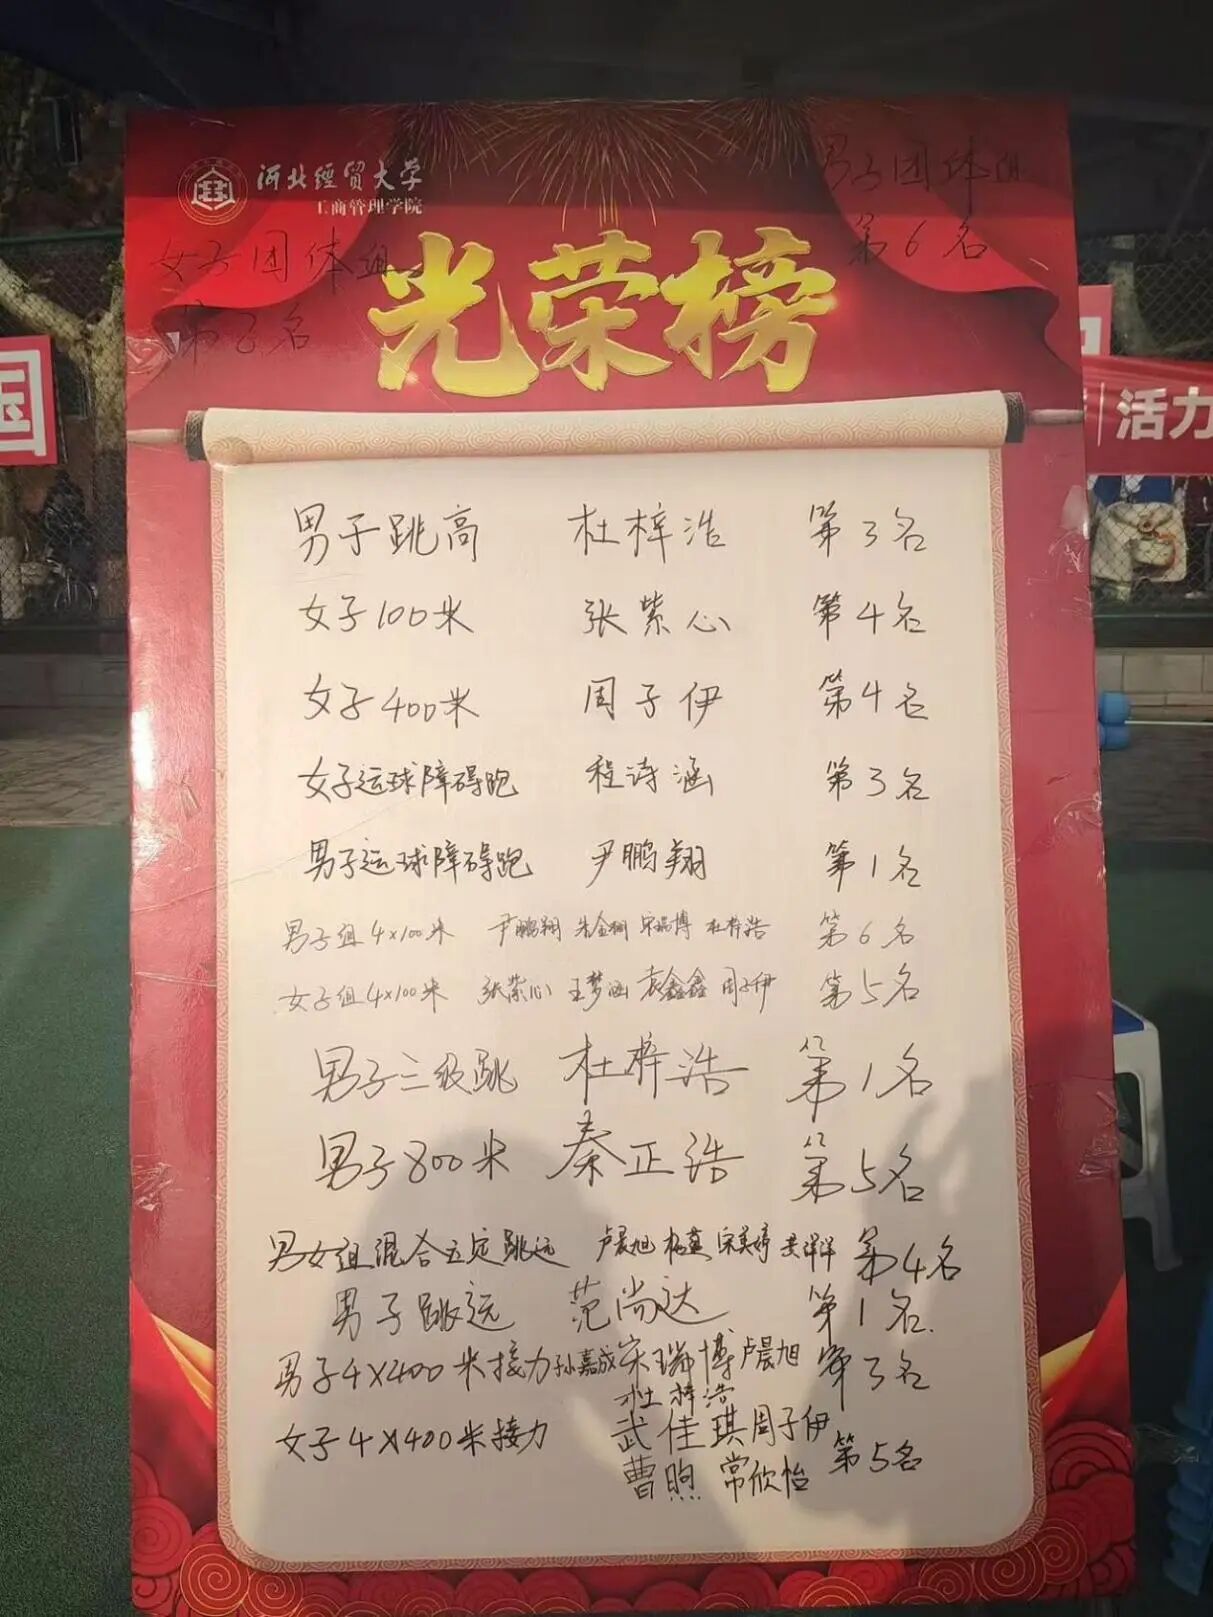 河北经贸大学
工商管理学院
男子团体组
第6名
女子团体组
第2名
光荣榜
国
活力
男子跳高 杜梓浩 第3名
女子100米 张紫心 第4名
女子400米 周子伊 第4名
女子运球障碍跑 程诗涵 第3名
男子运球障碍跑 尹鹏翔 第1名
男子组4×100米 尹鹏翔 宋瑞博 杜梓浩 第6名
女子组4×100米 张紫心 王梦涵 袁鑫鑫 周子伊 第5名
男子三级跳 杜梓浩 第1名
男子800米 秦正浩 第5名
男女组混合立定跳远 卢晨旭 宋美婷 第4名
男子跳远 范尚达 第1名
男子4×400米接力 孙嘉成 宋瑞博 卢晨旭 第3名
杜梓浩
女子4×400米接力 武佳琪 周子伊
曹煦 常欣怡 第5名